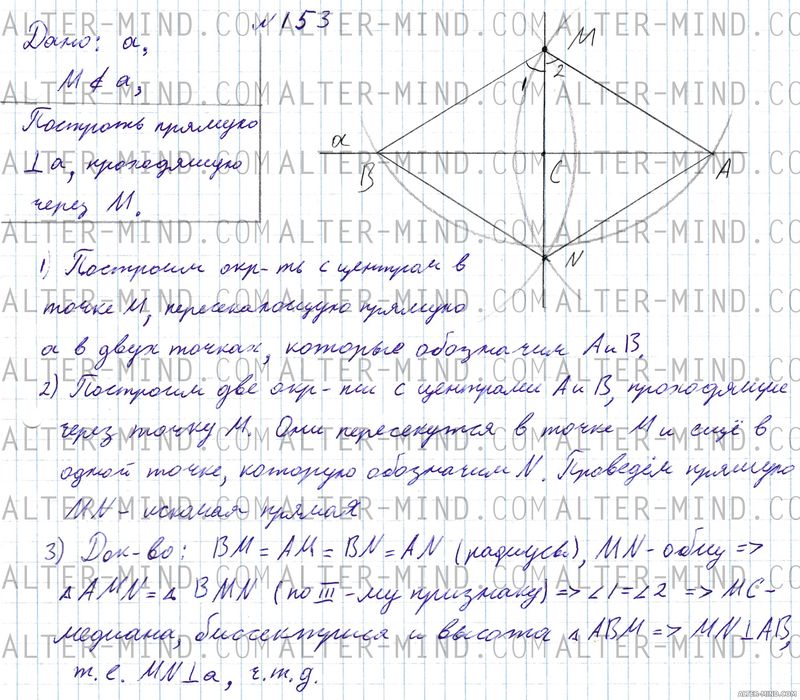 № 153
Дано: a,
M ∉ a,
Построить прямую
⊥ a, проходящую
через M.
M
1 2
a
B
C
A
N
1) Построим окр-ть с центром в
точке M, пересекающую прямую
a в двух точках, которые обозначим A и B.
2) Построим две окр-ти с центрами A и B, проходящие
через точку M. Они пересекутся в точке M и ещё в
одной точке, которую обозначим N. Проведём прямую
MN - искомая прямая
3) Док-во: BM = AM = BN = AN (радиусы), MN - общ =>
△ AMN = △ BMN (по III-му признаку) => ∠1 = ∠2 => MC -
медиана, биссектриса и высота △ ABM => MN ⊥ AB,
т.е. MN ⊥ a, ч.т.д.
ALTER-MIND.COM